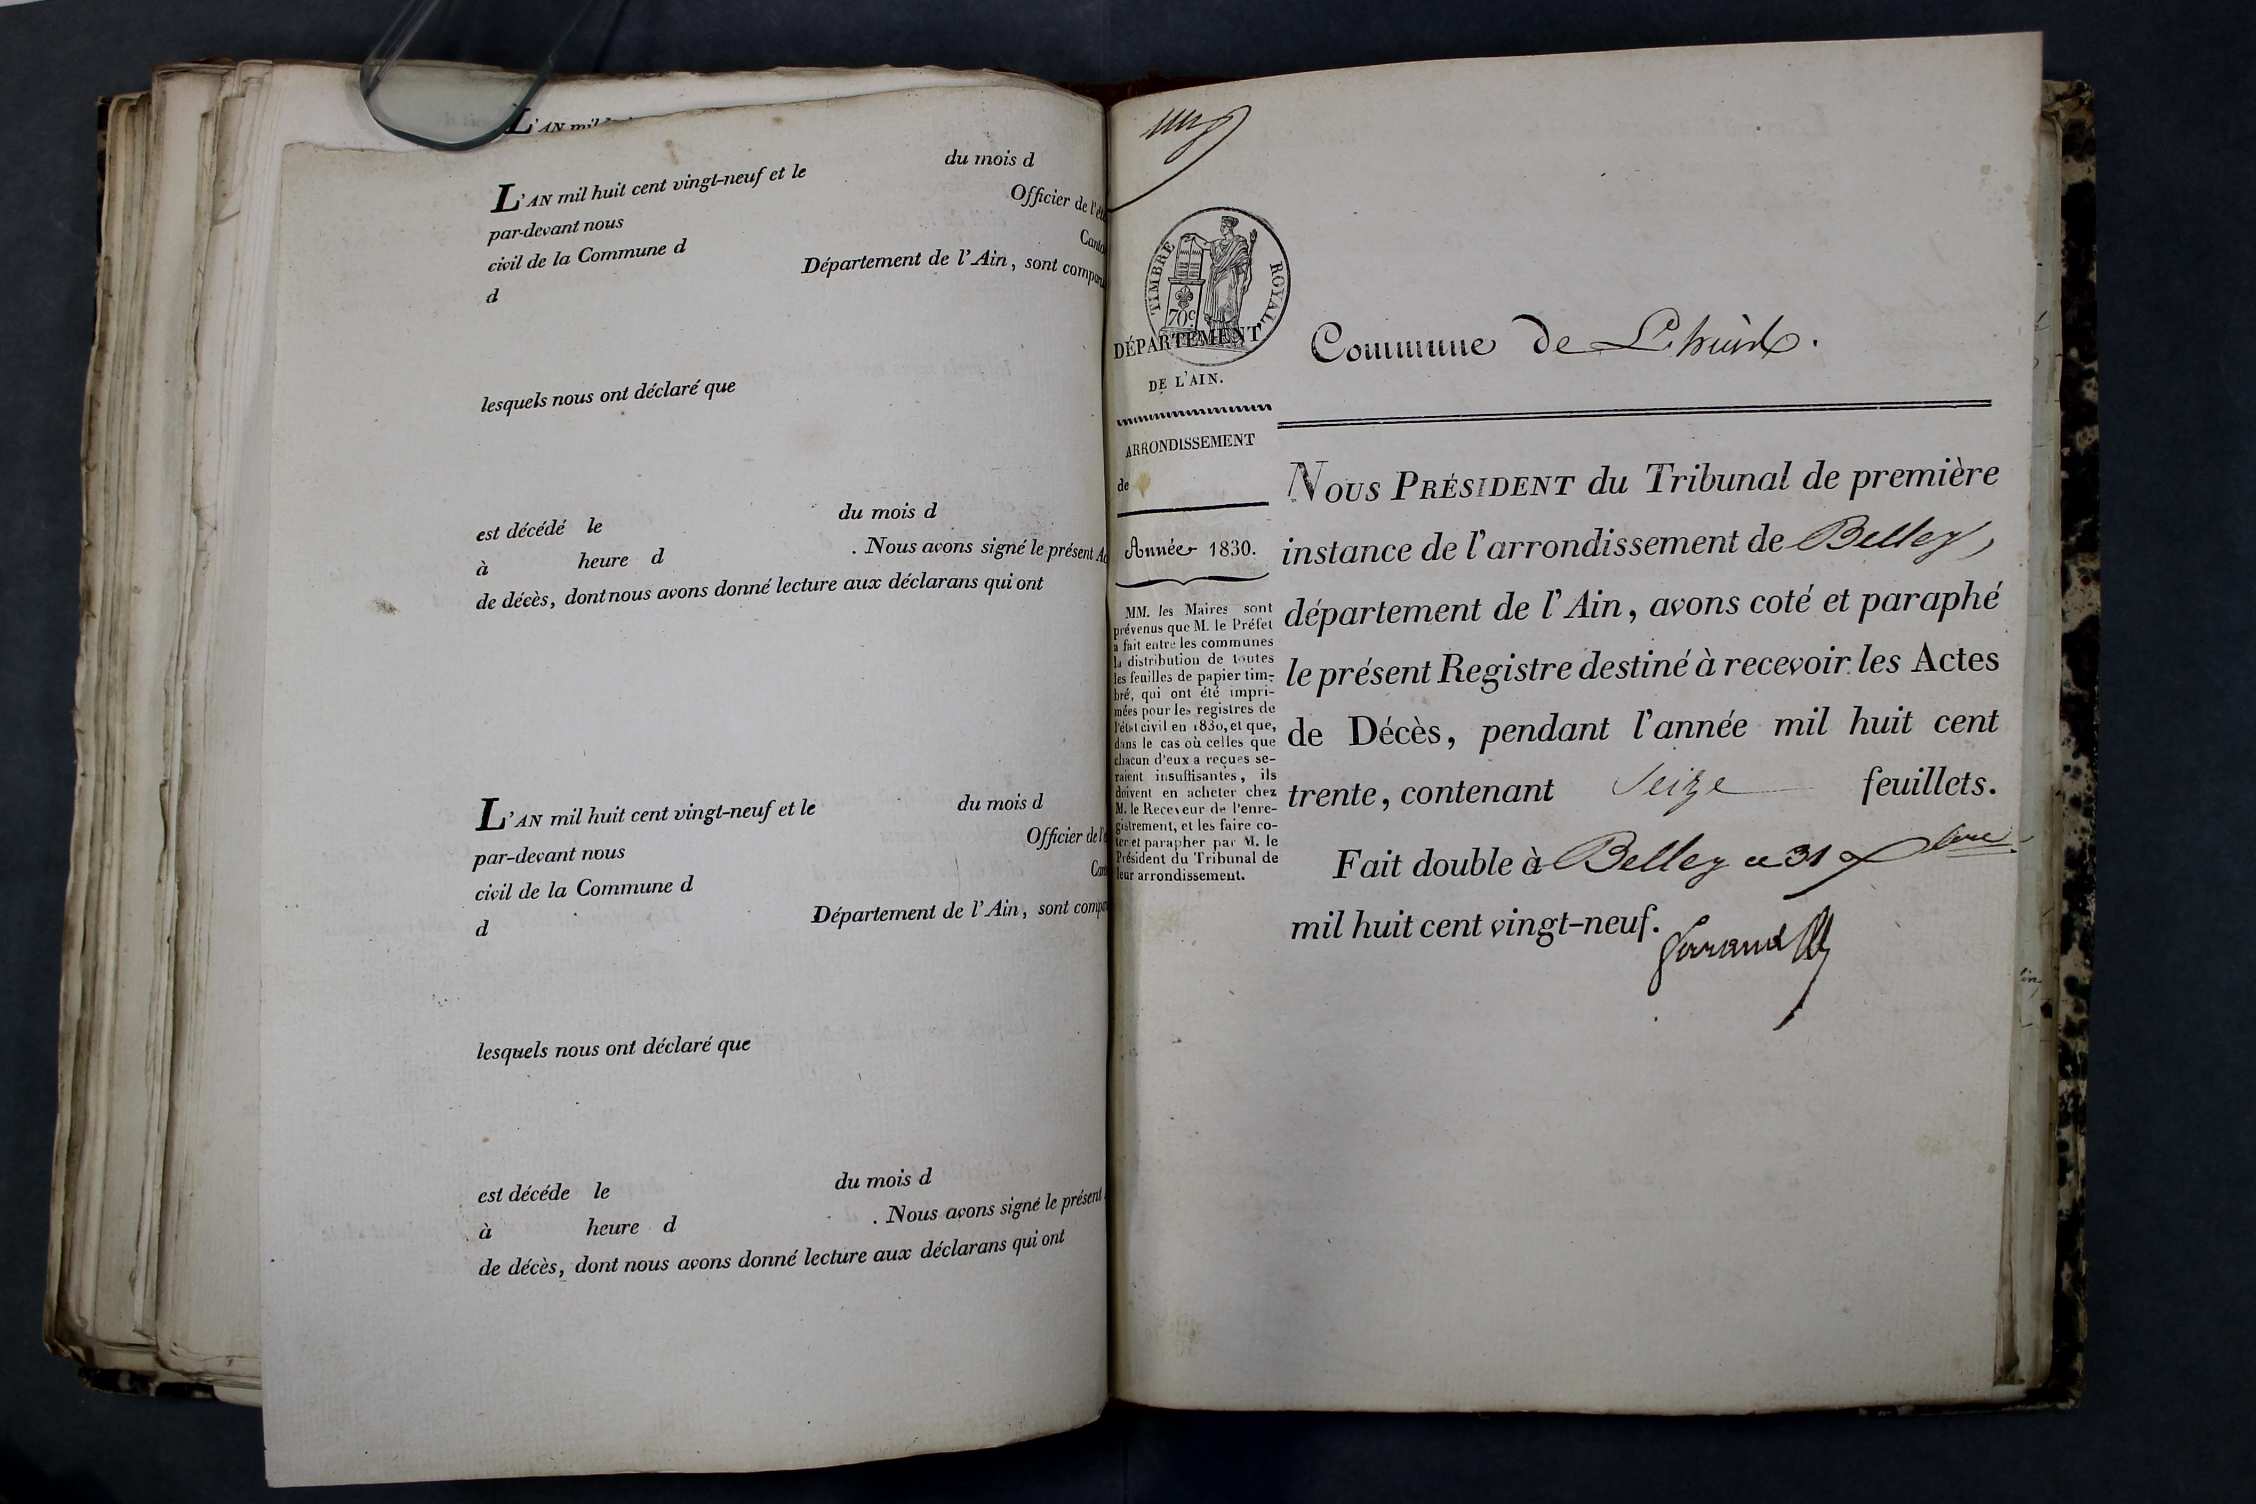 L'AN mil
L'AN mil huit cent vingt-neuf et le du mois d
par-devant nous Officier de l'éta
civil de la Commune d Canto
d Département de l'Ain, sont comparu
lesquels nous ont déclaré que
est décédé le du mois d
à heure d . Nous avons signé le présent Ac
de décès, dont nous avons donné lecture aux déclarans qui ont
L'AN mil huit cent vingt-neuf et le du mois d
par-devant nous Officier de l'é
civil de la Commune d Can
d Département de l'Ain, sont compa
lesquels nous ont déclaré que
est décéde le du mois d
à heure d . Nous avons signé le présent
de décès, dont nous avons donné lecture aux déclarans qui ont
TIMBRE ROYAL
70c
DÉPARTEMENT
DE L'AIN.
ARRONDISSEMENT
de
Année 1830.
MM. les Maires sont
prévenus que M. le Préfet
a fait entre les communes
la distribution de toutes
les feuilles de papier tim-
bré, qui ont été impri-
mées pour les registres de
l'état civil en 1830, et que,
dans le cas où celles que
chacun d'eux a reçues se-
raient insuffisantes, ils
doivent en acheter chez
M. le Receveur de l'enre-
gistrement, et les faire co-
ter et parapher par M. le
Président du Tribunal de
leur arrondissement.
Commune de Lhuis.
NOUS PRÉSIDENT du Tribunal de première
instance de l'arrondissement de Belley,
département de l'Ain, avons coté et paraphé
le présent Registre destiné à recevoir les Actes
de Décès, pendant l'année mil huit cent
trente, contenant Seize feuillets.
Fait double à Belley ce 31 Xbre
mil huit cent vingt-neuf.